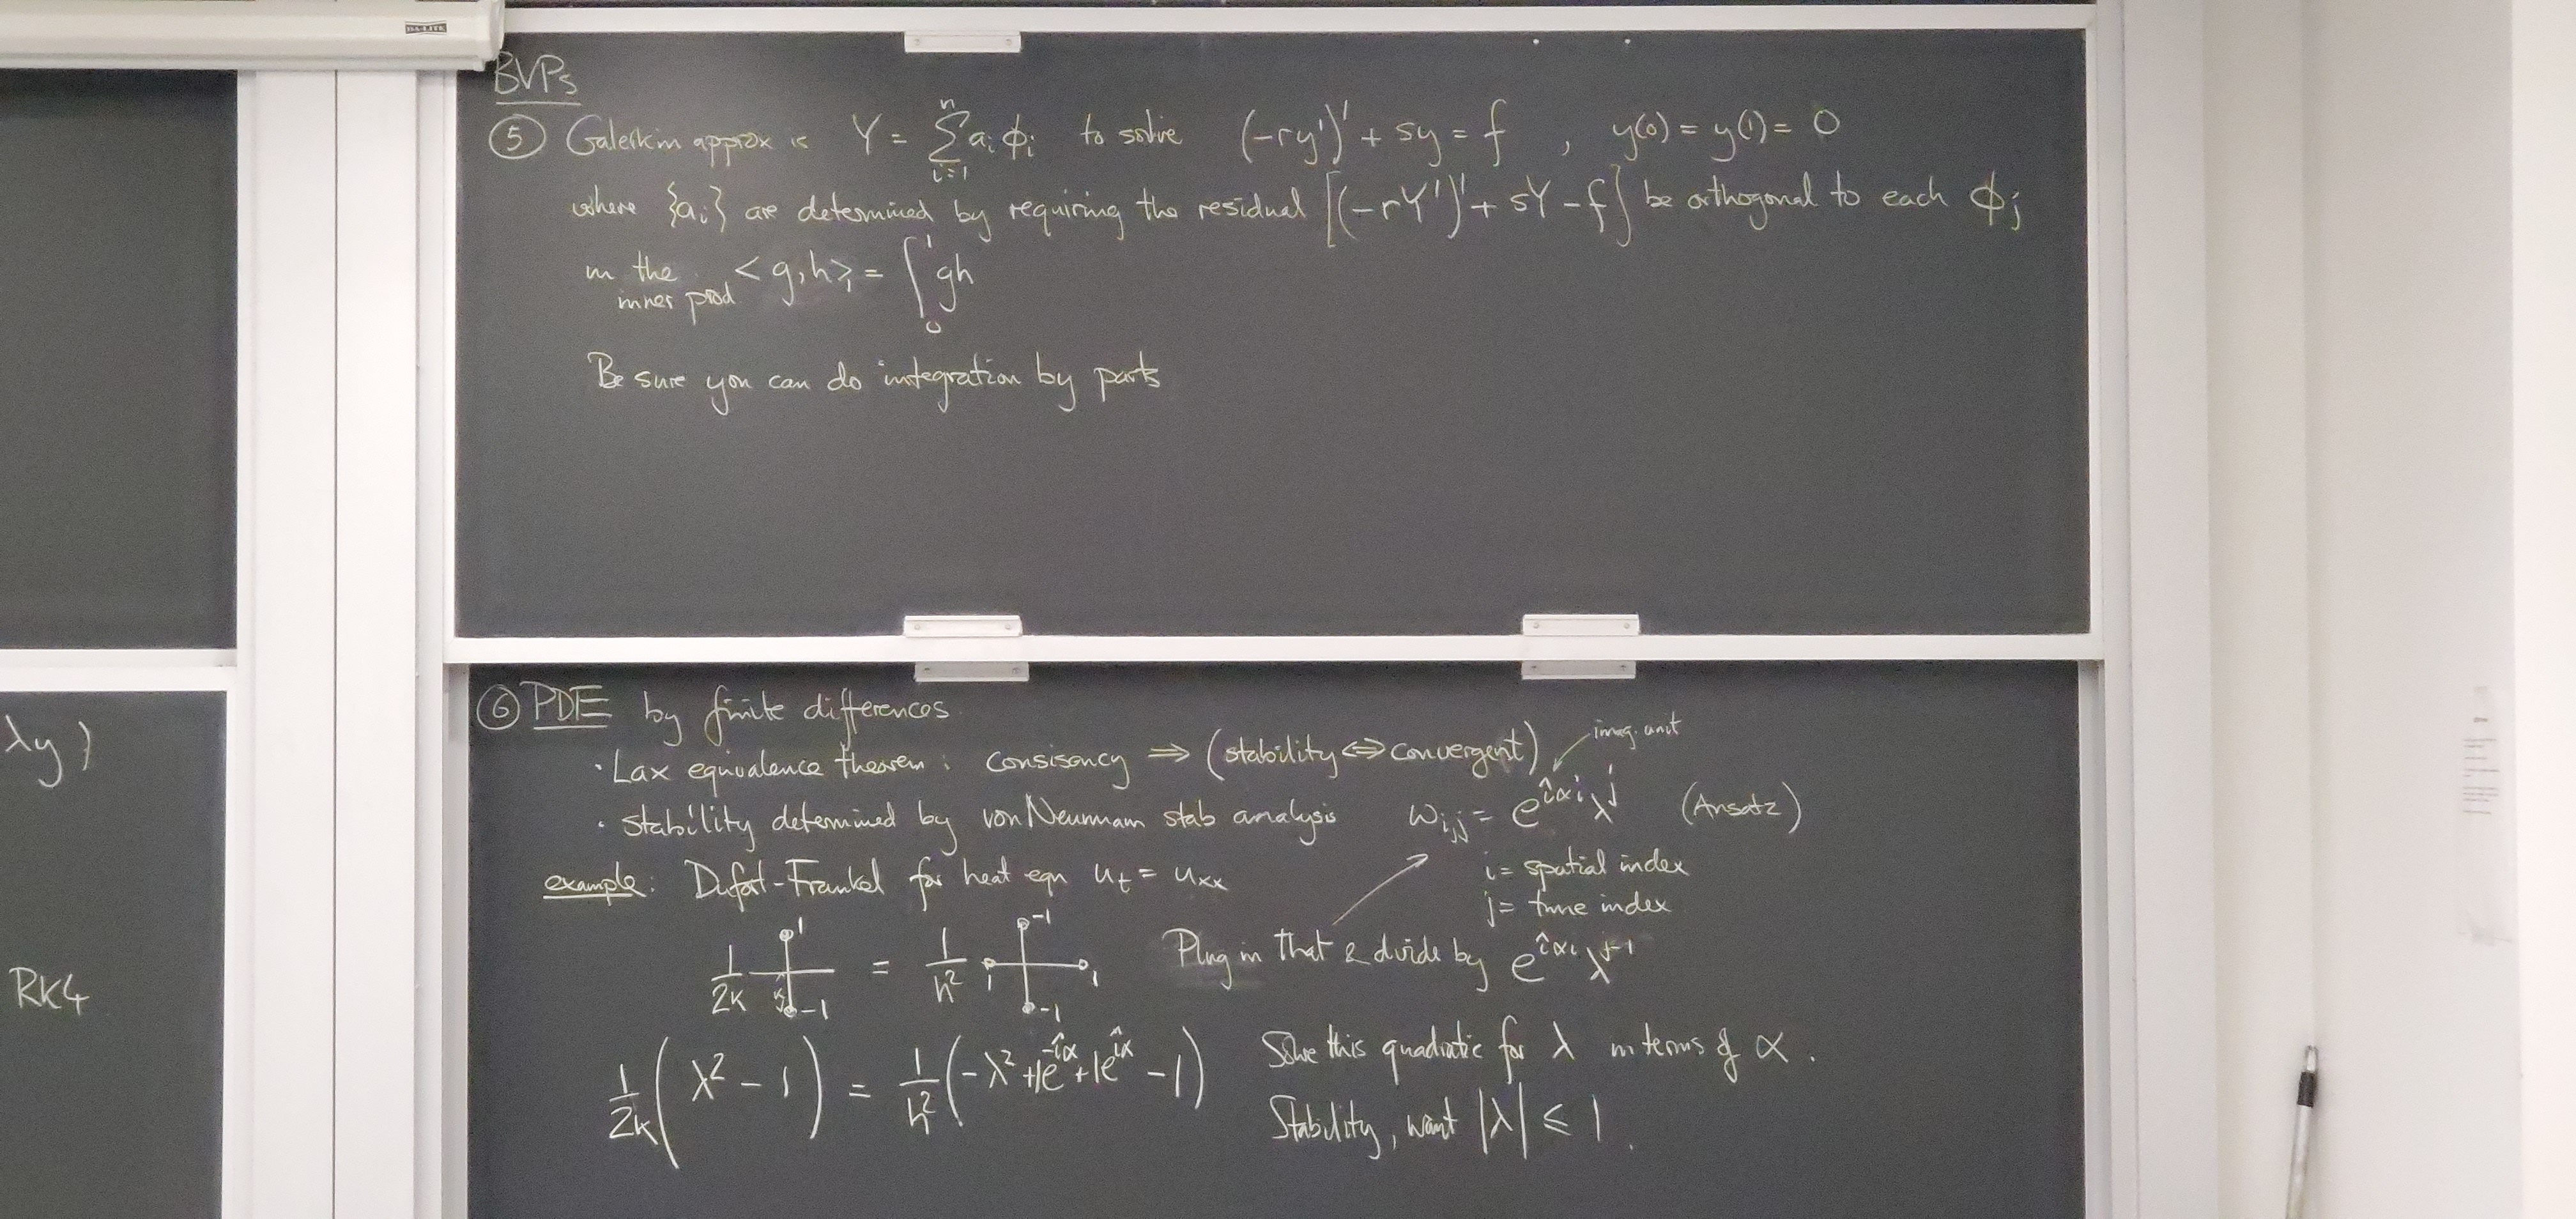 DA-LITE
BVPs
⑤ Galerkin approx is Y = Σ_{i=1}^{n} a_i ϕ_i to solve (-ry')' + sy = f , y(0) = y(1) = 0
where {a_i} are determined by requiring the residual [(-rY')' + sY - f] be orthogonal to each ϕ_j
in the inner prod <g,h> = ∫_0^1 gh
Be sure you can do integration by parts
λy)
RK4
⑥ PDE by finite differences
· Lax equivalence theorem : consisency ⇒ (stability ⇔ convergent)
imag. unit
· stability determined by von Neumann stab analysis w_{i,j} = e^{îαi} λ^j (Ansatz)
i = spatial index
j = time index
example: Dufort-Frankel for heat eqn u_t = u_xx
1/2k 1 -1 = 1/h² -1 1 1 -1
Plug in that & divide by e^{îαi} λ^{j-1}
1/2k (λ² - 1) = 1/h² (-λ² + 1e^{-îα} + 1e^{îα} - 1)
Solve this quadratic for λ in terms of α.
Stability, want |λ| ≤ 1.